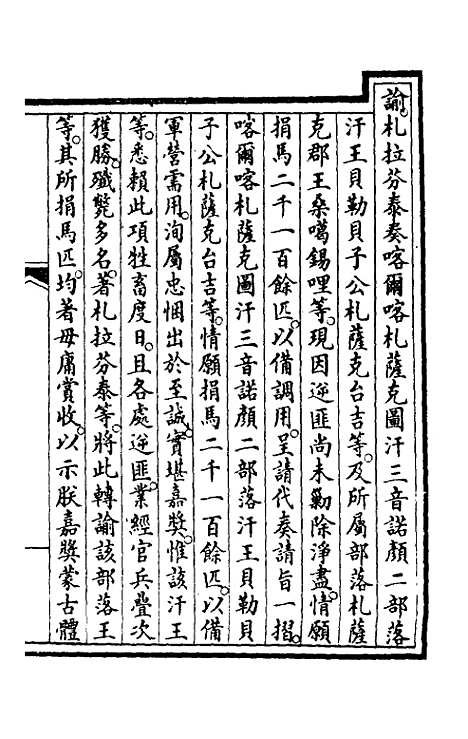 諭札拉芬泰奏喀爾喀札薩克圖汗三音諾顏二部落
汗王貝勒貝子公札薩克台吉等及所屬部落札薩
克郡王桑噶錫哩等現因逆匪尚未勦除淨盡情願
捐馬二千一百餘匹以備調用呈請代奏請旨一摺
喀爾喀札薩克圖汗三音諾顏二部落汗王貝勒貝
子公札薩克台吉等情願捐馬二千一百餘匹以備
軍營需用洵屬忠悃出於至誠實堪嘉獎惟該汗王
等悉賴此項牲畜度日且各處逆匪業經官兵疊次
獲勝殲斃多名著札拉芬泰等將此轉諭該部落王
等其所捐馬匹均著毋庸賞收以示朕嘉獎蒙古體